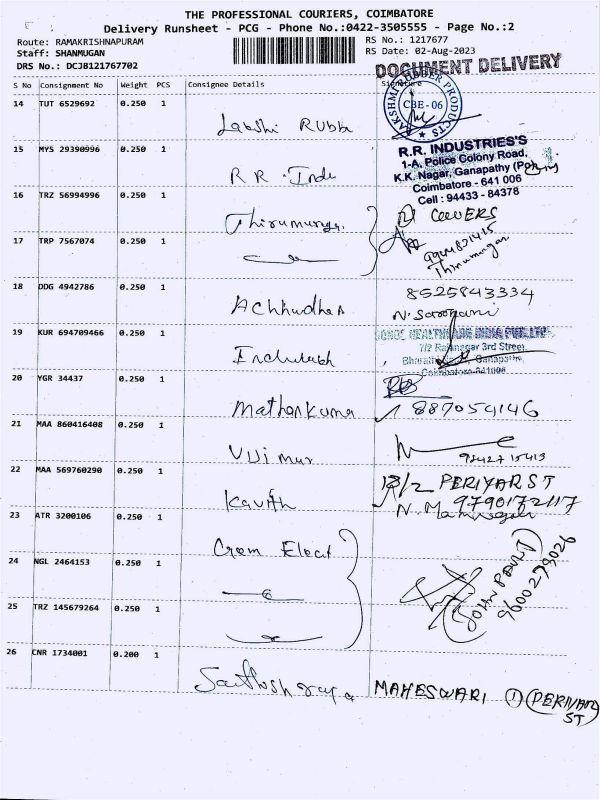 THE PROFESSIONAL COURIERS, COIMBATORE
Delivery Runsheet - PCG - Phone No.:0422-3505555 - Page No.:2
Route: RAMAKRISHNAPURAM
RS No.: 1217677
Staff: SHANMUGAN
RS Date: 02-Aug-2023
DRS No.: DCJB121767702
DOCUMENT DELIVERY
S No Consignment No Weight PCS Consignee Details Signature
14 TUT 6529692 0.250 1
CBE-06
RUBBER PRODUCTS
Lakshi Rubb
15 MYS 29390996 0.250 1
R.R. INDUSTRIES'S
1-A, Police Colony Road,
K.K. Nagar, Ganapathy (Po),
Coimbatore - 641 006
Cell : 94433 - 84378
R R Indu
16 TRZ 56994996 0.250 1
Thirumurga.
COVERS
17 TRP 7567074 0.250 1
Thirumurugan
18 DDG 4942786 0.250 1
8525843334
Achhudhan
N. Sarojani
19 KUR 694709466 0.250 1
HEALTHCARE INDIA PVT. LTD.
7/2 Rajnagar 3rd Street,
Ganapathy,
Coimbatore-641006
20 YGR 34437 0.250 1
Mathankuma
887054146
21 MAA 860416408 0.250 1
Vijimur
95427 15413
22 MAA 569760290 0.250 1
13/2 PERIYAR ST
9790172117
Kavith
23 ATR 3200106 0.250 1
Crom Elect
24 NGL 2464153 0.250 1
JOHN PAUL
9600279026
25 TRZ 145679264 0.250 1
26 CNR 1734001 0.200 1
MAHESWARI 1 (PERIYAR
ST)